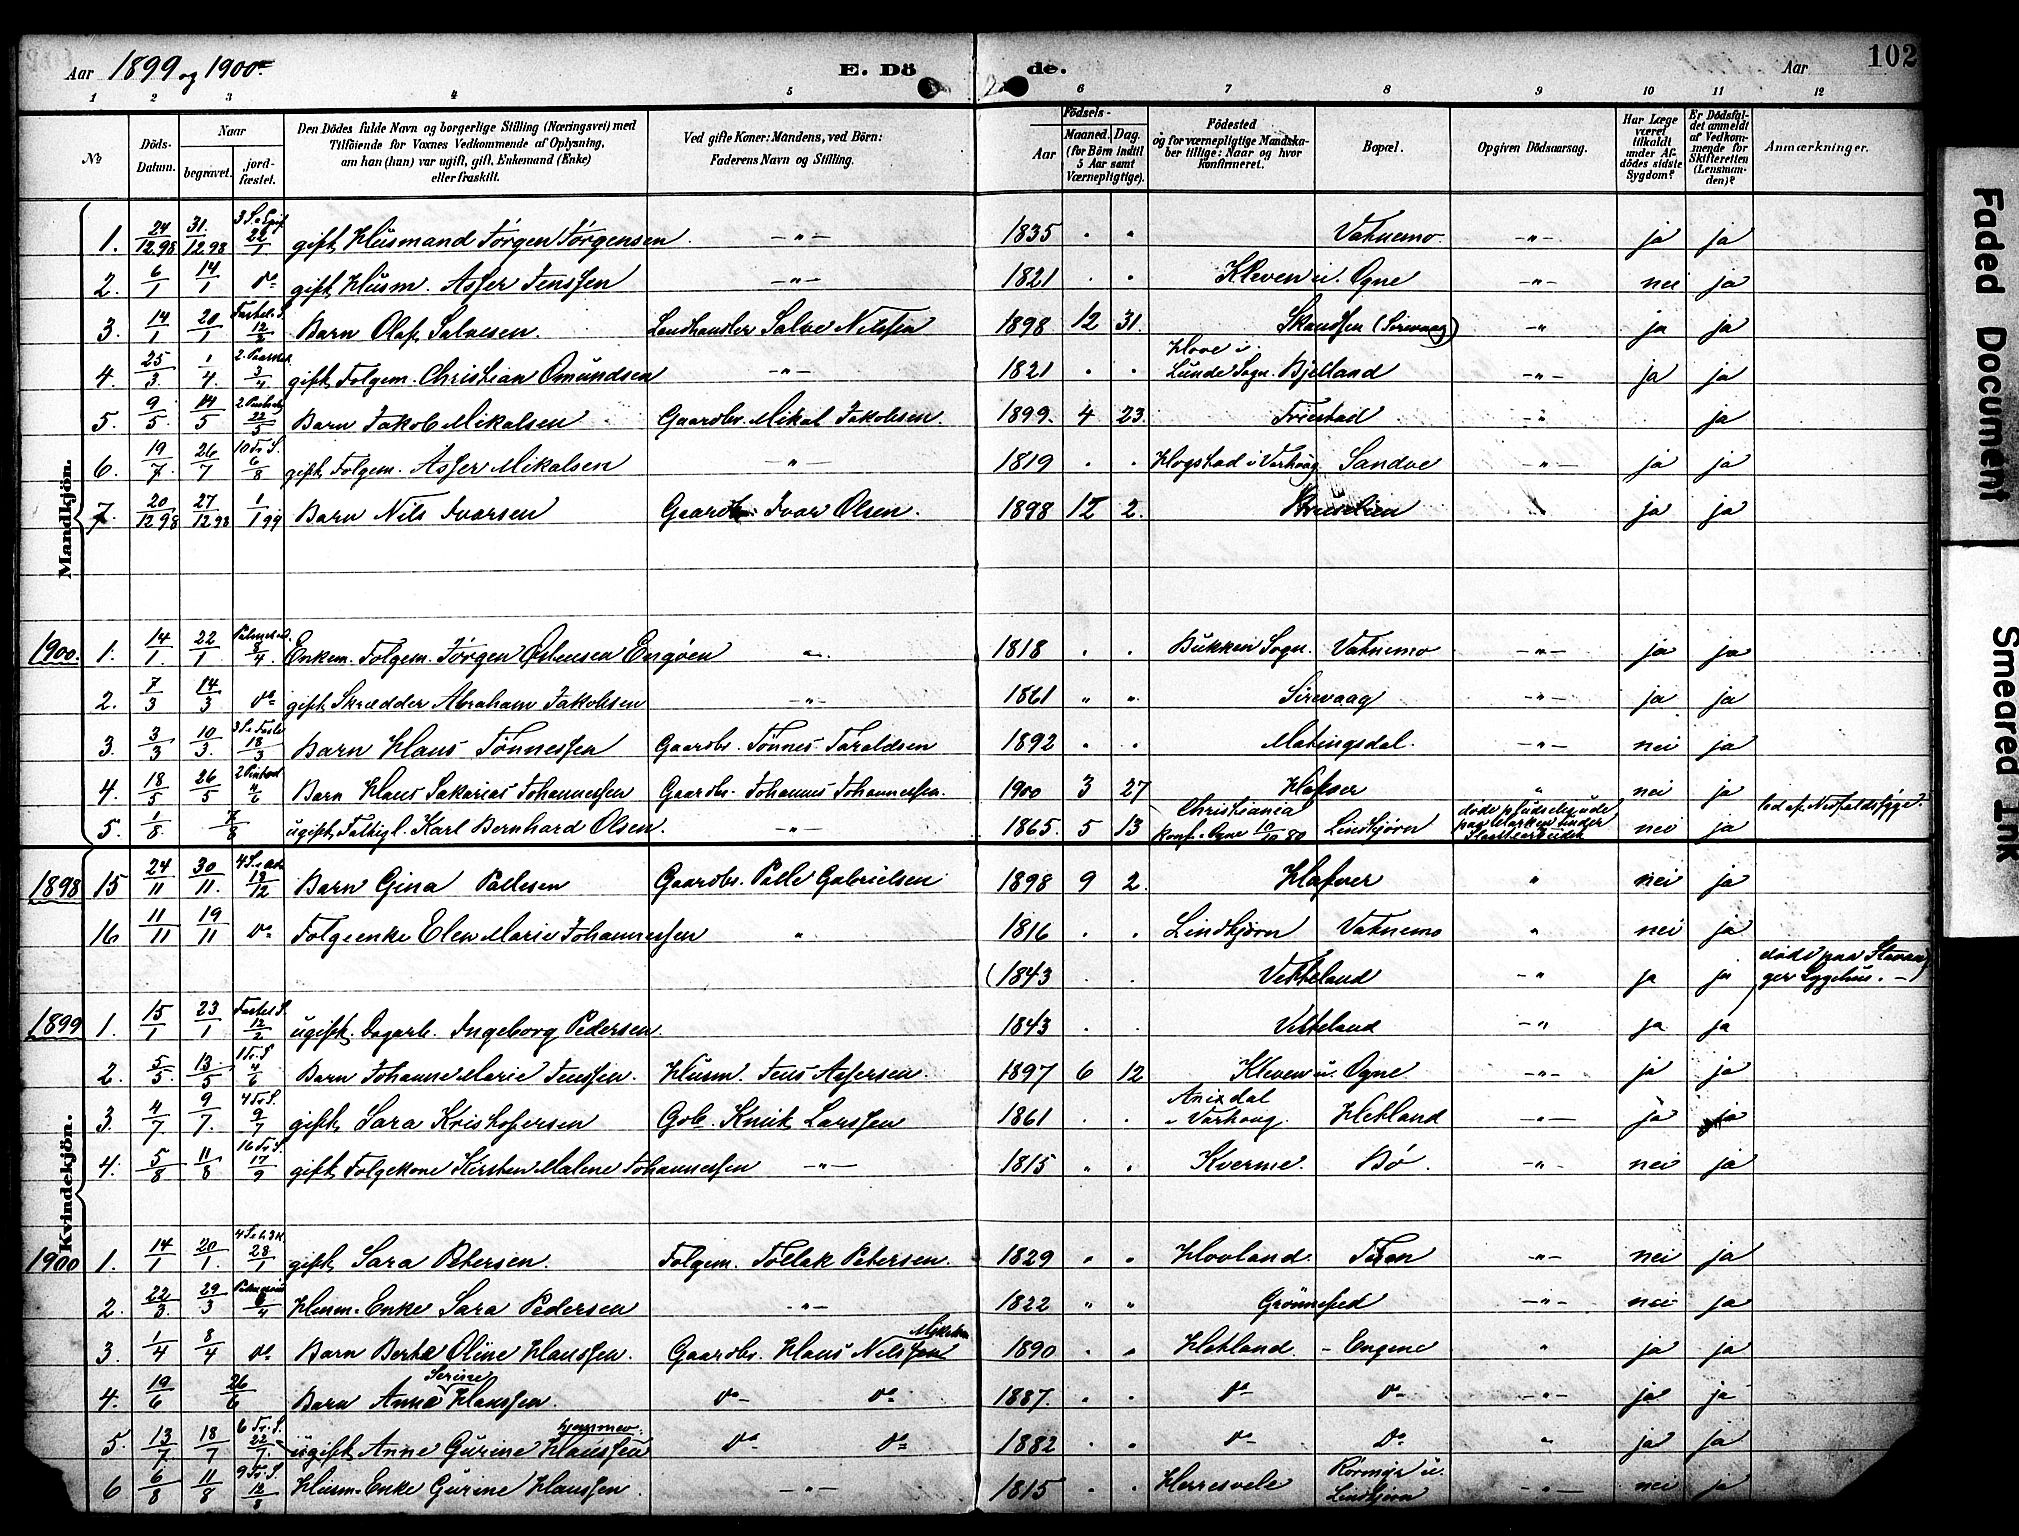 Aar 1899 og 1900 E. Dö de. Aar 102
1 2 3 4 5 6 7 8 9 10 11 12
No Döds-Datum. Naar begravet. jord-fæstet. Den Dödes fulde Navn og borgerlige Stilling (Næringsvei) med Tilföiende for Voxnes Vedkommende af Oplysning, om han (hun) var ugift, gift, Enkemand (Enke) eller fraskilt. Ved gifte Koner: Mandens, ved Börn: Faderens Navn og Stilling. Födsels- Aar Maaned. Dag. (for Börn indtil 5 Aar samt Værnepligtige). Födested og for værnepligtige Mandska-ber tillige: Naar og hvor konfirmeret. Bopæl. Opgiven Dödsaarsag. Har Læge været tilkaldt under Af-dödes sidste Sygdom? Er Dödsfal-det anmeldt af Vedkom-mende for Skifteretten (Lensman-den)? Anmærkninger.
Mandkjön.
1. 24/12.98 31/12.98 22/1 gift Husmand Jørgen Jørgensen -"- 1835 " " Vatnemo -"- ja ja
2. 6/1 14/1 do gift Husm. Asser Jenssen -"- 1821 " " Kleven u. Ogne -"- nei ja
3. 14/1 20/1 Fastel. S. 12/2 Barn Olaf Salvesen. Landhandler Salve Nilssen 1898 12 31. Skandsen (Sirevaag) -"- ja ja
4. 25/3 1/4. 3/4 gift Folgem. Christian Omundsen -"- 1821 " " Hove i Lunde Sogn. Bjelland -"- ja ja
5. 9/5. 14/5 22/5 Barn Jakob Mikalsen Gaardbr. Mikal Jakobsen. 1899. 4 23. Friestad -"- ja
6. 19/7. 26/7 10 Tr. S. 6/8 gift Folgem. Asser Mikalsen -"- 1819 " " Hogstad i Varhaug Sandve -"- ja ja
7. 20/12 98 27/12 98 1/1 99 Barn Nils Ivarsen Gaardbr. Ivar Olsen. 1898 12 2. ja ja
1900. 1. 14/1. 22/1 8/4. Enkem. Folgem. Jørgen Østensen Engøen " 1818 " " Bukken Sogn. Vatnemo -"- ja ja
2. 7/3 14/3 do gift Skrædder Abraham Jakobsen -"- 1861 " " Sirevaag -"- ja ja
3. 3/3 10/3. 18/3 Barn Hans Tønnessen Gaardbr. Tønnes Taraldsen 1892 " " Matingsdal. -"- nei ja
4. 18/5 26/5 4/6 Barn Hans Sakarias Johannessen Gaardbr. Johannes Johannessen. 1900 3 27 Hafver " nei ja
5. 1/8 7/8 ugift Karl Bernhard Olsen. -"- 1865. 5 13 Christiania Konf. Ogne 10/10 80 Lindtjørn nei ja
1898 15 24/11 30/11. 18/12 Barn Gina Pallesen Gaardbr. Palle Gabrielsen 1898 9 2. Hafver " nei ja
16 11/11 19/11 do Folgeenke Elen Marie Johannessen " 1816 " " Lindtjørn Vatnemo " nei ja
(1843 " Vetteland -"- ja ja døde paa Stavan-ger Sygehus. -)
Kvindekjön.
1899 1. 15/1 23/1 Fastel S. 12/2 ugift. Dagarb. Ingeborg Pedersen. 1843 " " Vetteland -"- ja ja
2. 5/5. 13/5 1 Tr. S 4/6 Barn Johanne Marie Jenssen. Husm. Jens Assersen. 1897 6 12 Kleven u. Ogne -"- ja ja
3. 4/7 9/7. 4 Tr. S. 9/7 gift Sara Kristofersen Gbr. Knut Larssen 1861 " " Anisdal " Varhaug. Hetland -"- ja ja
4. 5/8 11/8 16 Tr. S. 17/9 gift Folgekone Kirsten Malene Johannessen -"- 1815 " " Kverme. Bø. -"- nei ja
1900 1. 14/1 20/1. 28/1 gift Sara Petersen. Folgem. Tollak Petersen. 1829 " " Hovland. -"- nei ja
2. 22/3. 29/3 8/4 Husm. Enke Sara Pedersen -"- 1822 " " -"- nei ja
3. 1/4 8/4 do Barn Berte Oline Hanssen. Gaardbr. Hans Nilssen 1890 " " Hetland. - Engene " ja ja
4. 19/6 26/6 Barn Anna Serine Hanssen. do do 1887. " " do do -"- ja ja
5. 13/7. 18/7 6 Tr. S. 22/7. ugift Anne Gurine Hanssen do do 1882 " " do do " ja ja
6 6/8 11/8 9 Tr. S. 12/8 Husm. Enke Gurine Hanssen. -"- 1815 " " Herresvele Lindtjørn -"- nei ja
Faded Document
Smeared Ink